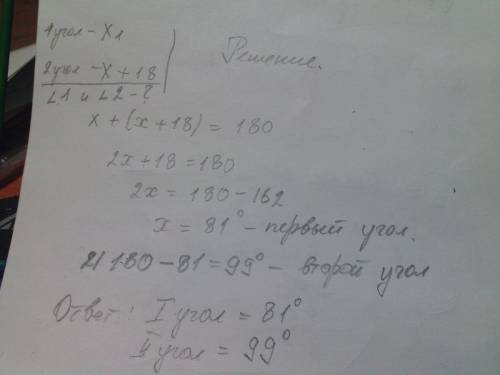 1 угол - x1
2 угол - x + 18
∠1 и ∠2 - ?
Решение.
x + (x + 18) = 180
2x + 18 = 180
2x = 180 - 162
x = 81° - первый угол.
2) 180 - 81 = 99° - второй угол
Ответ: I угол = 81°
II угол = 99°